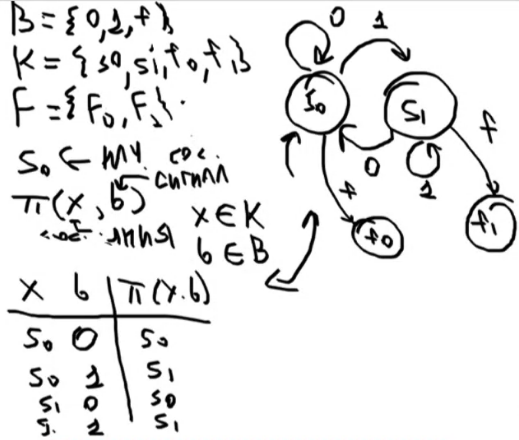 B={0,1,f}
K={s0,s1,f0,f1}
F={F0,F1}.
S0 ← нач. сос.
сигнал
π(x,b)
x∈K
b∈B
x b π(x.b)
S0 0 S0
S0 1 S1
S1 0 S0
S. 1 S1
0 1
S0 S1
f
0 1
f
f0 f1